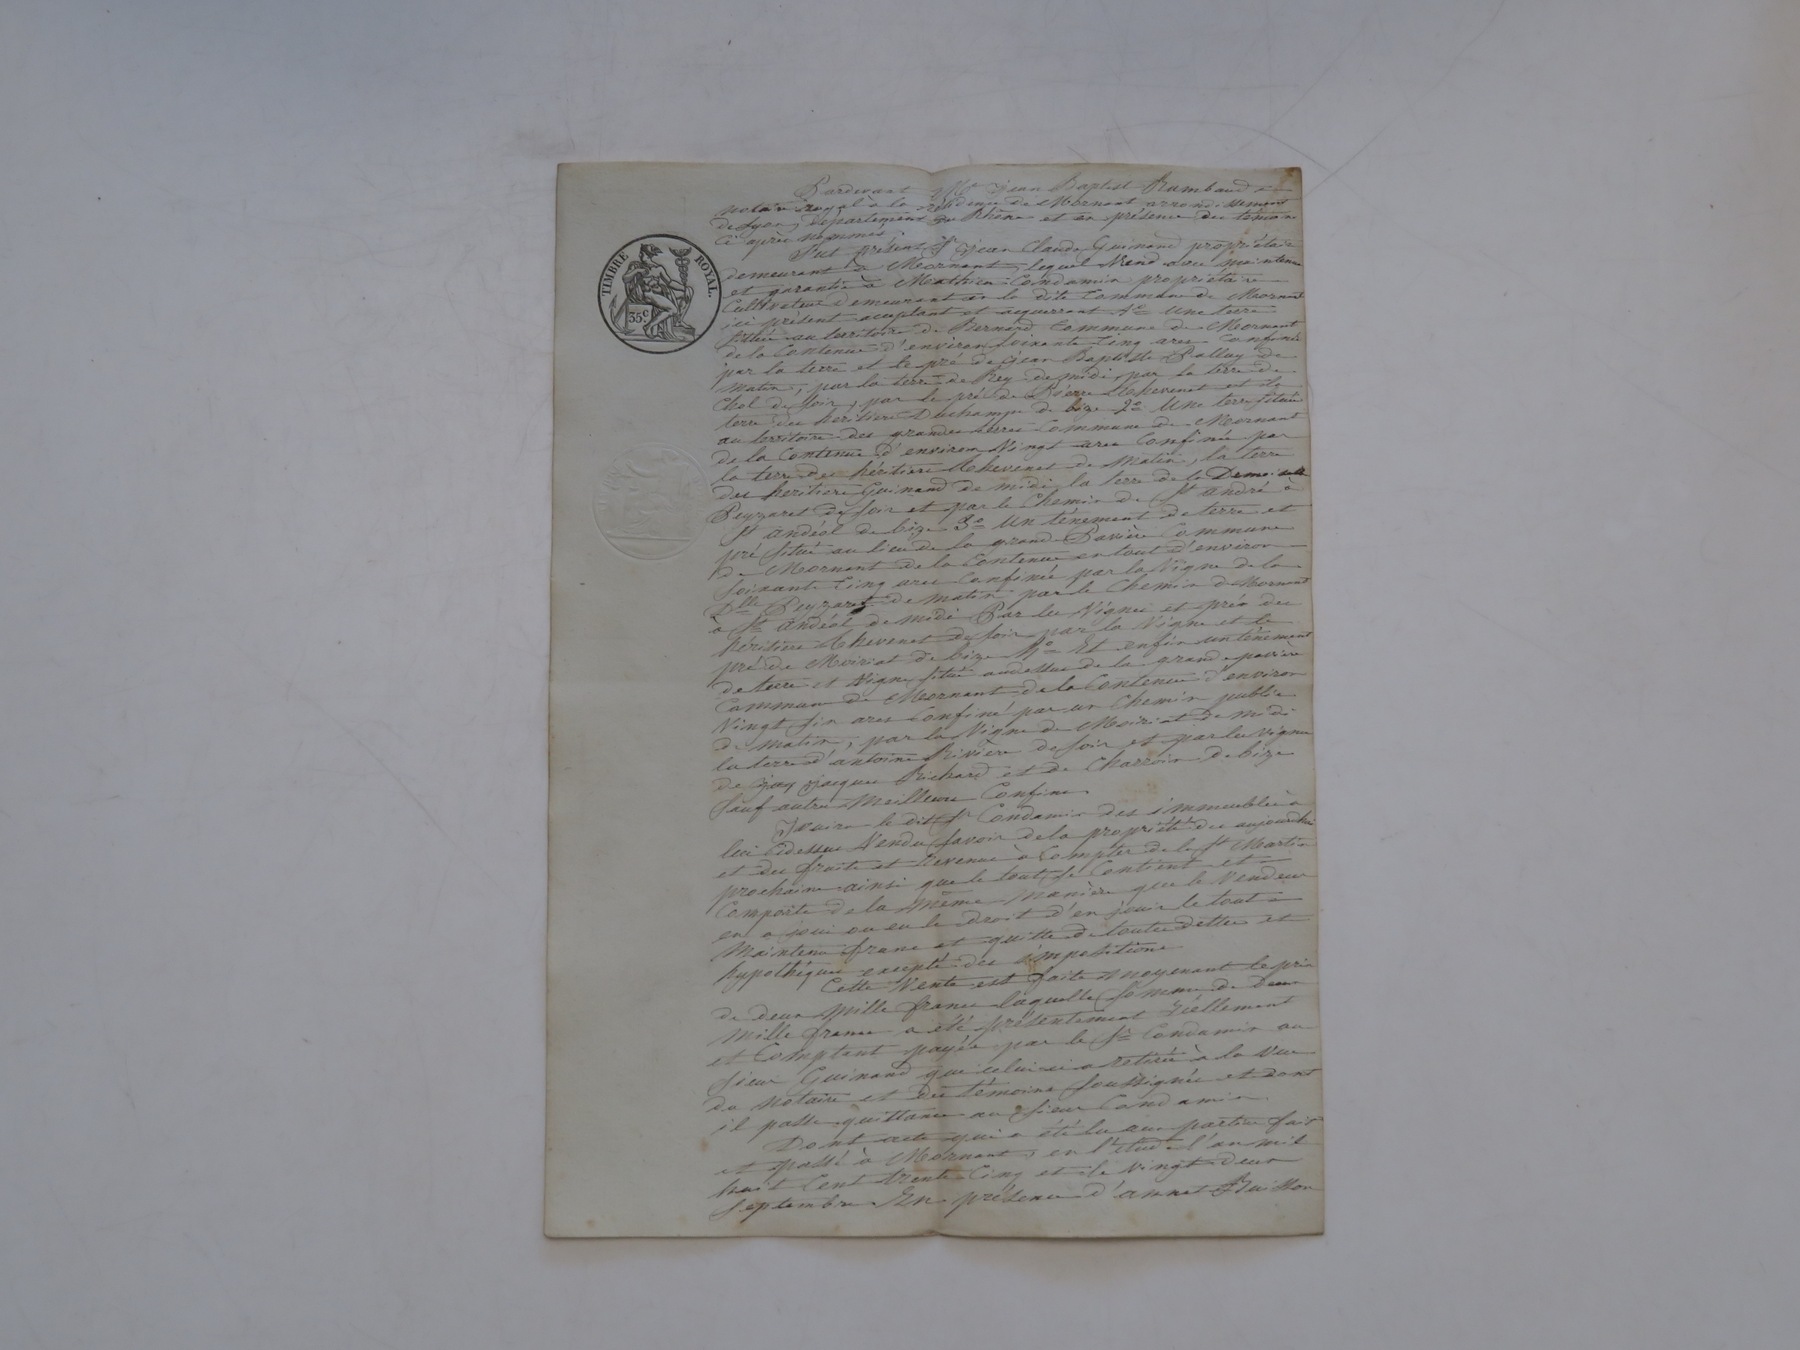 TIMBRE ROYAL.
35c
Pardevant Me Jean Baptist Rambaud
notaire royal à la résidence de Mornant arrondissement
de Lyon, Département du Rhône et en présence des témoins
ci après nommés.
Fut présent Sr Jean Claude Guinand propriétaire
demeurant à Mornant, lequel Vend avec maintenue
et garantie à Mathieu Condamin propriétaire
Cultivateur demeurant en la dite Commune de Mornant
ici présent acceptant et acquerrant 1o Une terre
située au territoire de Bernard Commune de Mornant
de la Contenue d'environ soixante Cinq ares Confinée
par la terre et le pré de Jean Baptiste Balluy de
Matin, par la terre de Rey de midi, par la terre de
Chol de soir, par le pré de Pierre Thevenet et la
terre des héritiers Duchamps de bize 2o Une terre située
au territoire des grandes terres Commune de Mornant
de la Contenue d'environ Vingt ares Confinée par
la terre des héritiers Thevenet de Matin, la terre
des héritiers Guinand de midi, la terre de la Demoiselle
Peyzaret de soir et par le Chemin de St André à
St andéol de bize 3o Un ténement de terre et
pré situé au lieu de la grande Pavière Commune
de Mornant de la Contenue en tout d'environ
soixante Cinq ares Confiné par la Vigne de la
Dlle Peyzaret de matin par le Chemin de Mornant
à St andéol de midi Par les Vignes et prés des
héritiers Thevenet de soir par la Vigne et le
pré de Moiriat de bize 4o Et enfin un ténement
de terre et Vigne situé audessus de la grande pavière
Commune de Mornant de la Contenue d'environ
Vingt six ares Confiné par un Chemin public
de matin, par la Vigne de Moiriat de midi
la terre d'antoine Rivière de soir et par les vignes
de Jean Jacques Richard et de Charvin de bize
sauf autres Meilleurs Confins.
Jouira le dit Sr Condamin des immeubles à
lui Cidessus Vendu savoir de la propriété dès aujourdhui
et des fruits et Revenus à Compter de la St Martin
prochaine ainsi que le tout se Contient et
Comporte de la Même Manière que le Vendeur
en a joui ou eu le droit d'en jouir le tout
Maintenu franc et quitte de toutes dettes et
hypothèques excepté des impositions
Cette Vente est faite moyenant le prix
de deux Mille francs laquelle somme de deux
Mille francs a été présentement réellement
et Comptant payée par le Sr Condamin au
sieur Guinand que celui ci a retirée à la Vue
du Notaire et des témoins soussignés et dont
il passe quittance au sieur Condamin.
Dont acte qui a été lu aux parties fait
et passé à Mornant, en l'étude l'an mil
huit Cent trente Cinq et le Vingt deux
septembre En présence d'annet